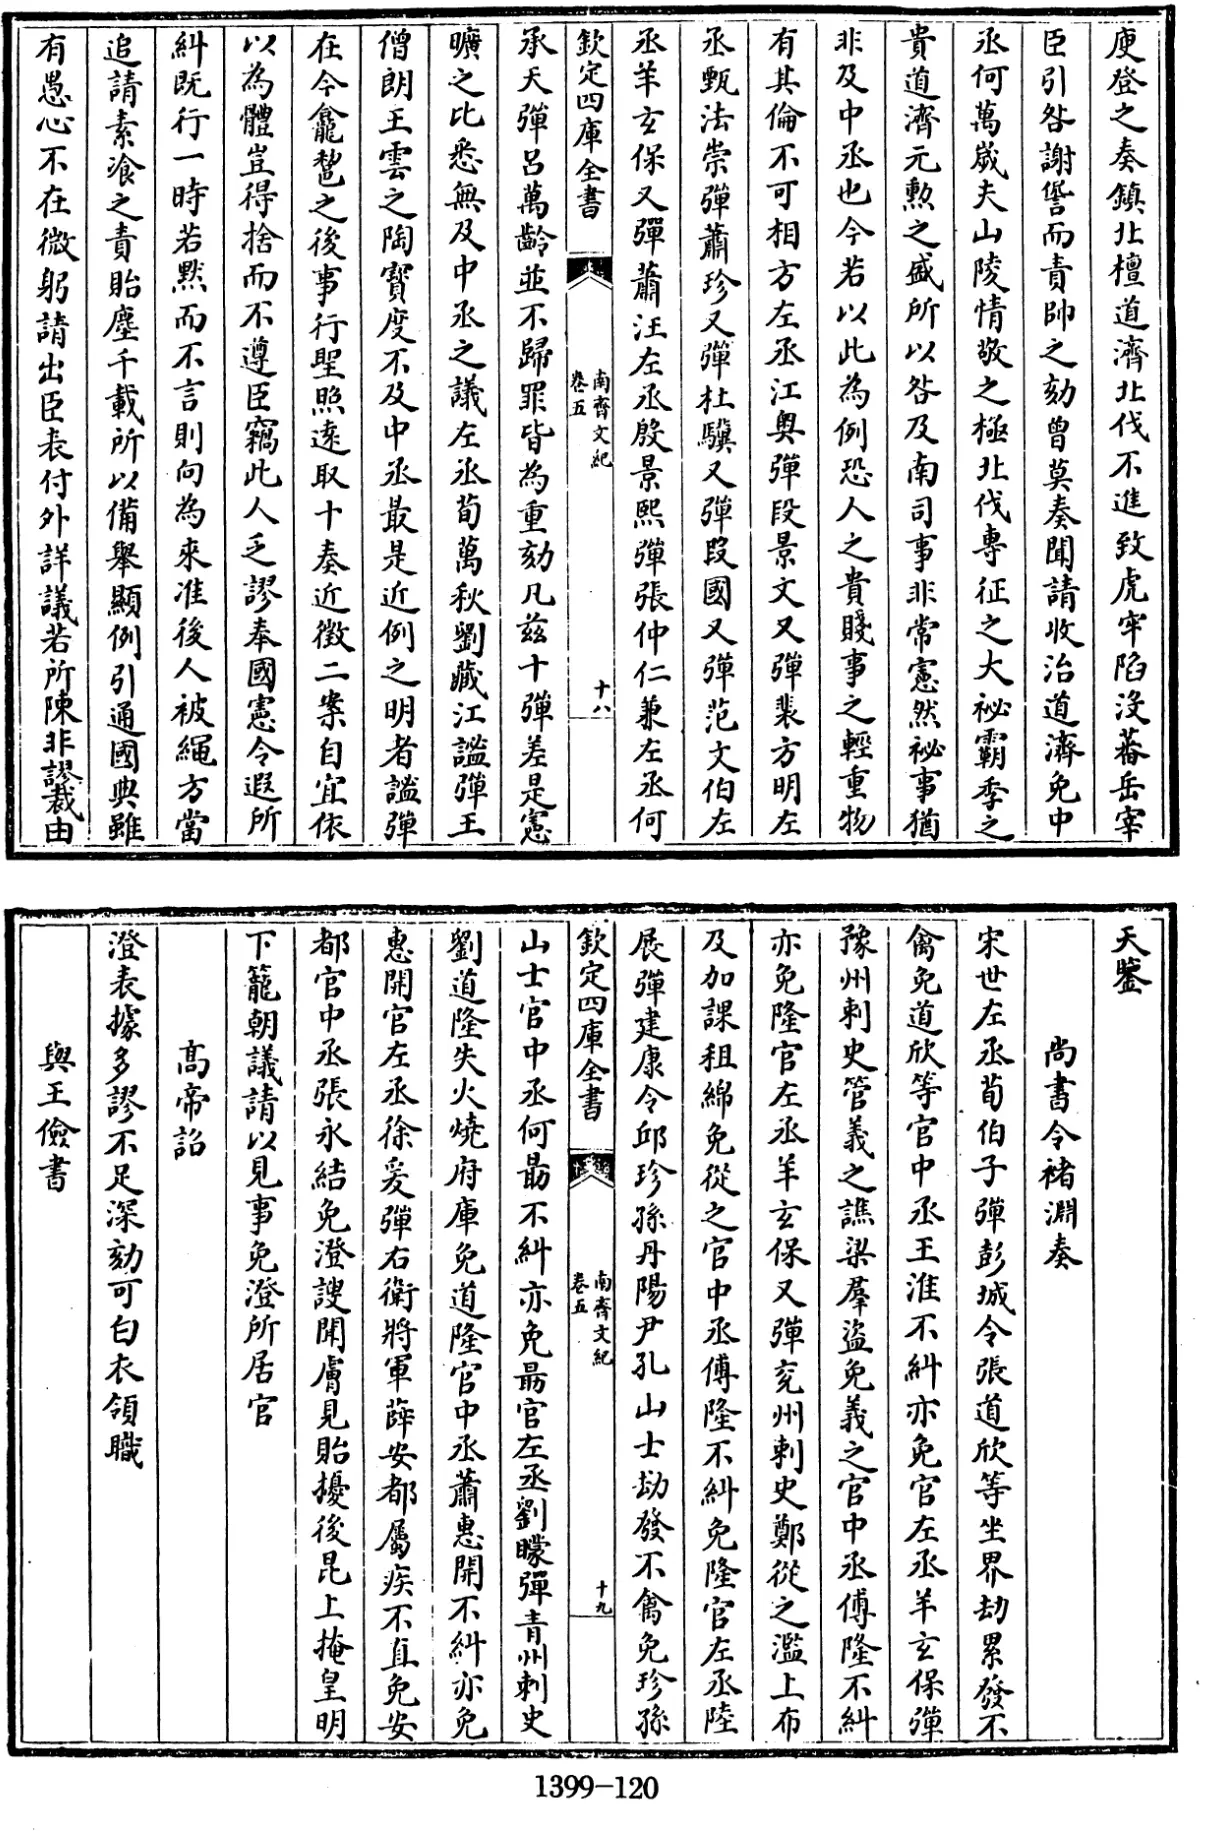 庾登之奏鎮北檀道濟北伐不進致虎牢陷没蕃岳宰
臣引咎謝愆而責帥之劾曾莫奏聞請收治道濟免中
丞何萬嵗夫山陵情敬之極北伐專征之大祕霸季之
貴道濟元勲之盛所以咎及南司事非常憲然祕事猶
非及中丞也今若以此為例恐人之貴賤事之輕重物
有其倫不可相方左丞江奥彈段景文又彈裴方明左
丞甄法崇彈蕭珍又彈杜驥又彈段國又彈范文伯左
丞羊玄保又彈蕭汪左丞殷景熙彈張仲仁兼左丞何
欽定四庫全書
南齊文紀
卷五
十八
承天彈吕萬齡並不歸罪皆為重劾凡兹十彈差是憲
曠之比悉無及中丞之議左丞荀萬秋劉藏江謐彈王
僧朗王雲之陶寶度不及中丞最是近例之明者謐彈
在今龕䓢之後事行聖照遠取十奏近徴二案自宜依
以為體豈得捨而不遵臣竊此人乏謬奉國憲今遐所
糾既行一時若黙而不言則向為來准後人被繩方當
追請素飡之責貽塵千載所以備舉顯例引通國典雖
有愚心不在微躬請出臣表付外詳議若所陳非謬裁由
天鑒
尚書令褚淵奏
宋世左丞荀伯子彈彭城令張道欣等坐界劫累發不
禽免道欣等官中丞王淮不糾亦免官左丞羊玄保彈
豫州刺史管義之譙梁羣盜免義之官中丞傅隆不糾
亦免隆官左丞羊玄保又彈兖州刺史鄭從之濫上布
及加課租綿免從之官中丞傅隆不糾免隆官左丞陸
展彈建康令邱珍孫丹陽尹孔山士劫發不禽免珍孫
欽定四庫全書
南齊文紀
卷五
十九
山士官中丞何勗不糾亦免勗官左丞劉矇彈青州刺史
劉道隆失火燒府庫免道隆官中丞蕭惠開不糾亦免
惠開官左丞徐爰彈右衛將軍薛安都屬疾不直免安
都官中丞張永結免澄謏聞膚見貽擾後昆上掩皇明
下籠朝議請以見事免澄所居官
髙帝詔
澄表據多謬不足深劾可白衣領職
與王儉書
1399-120